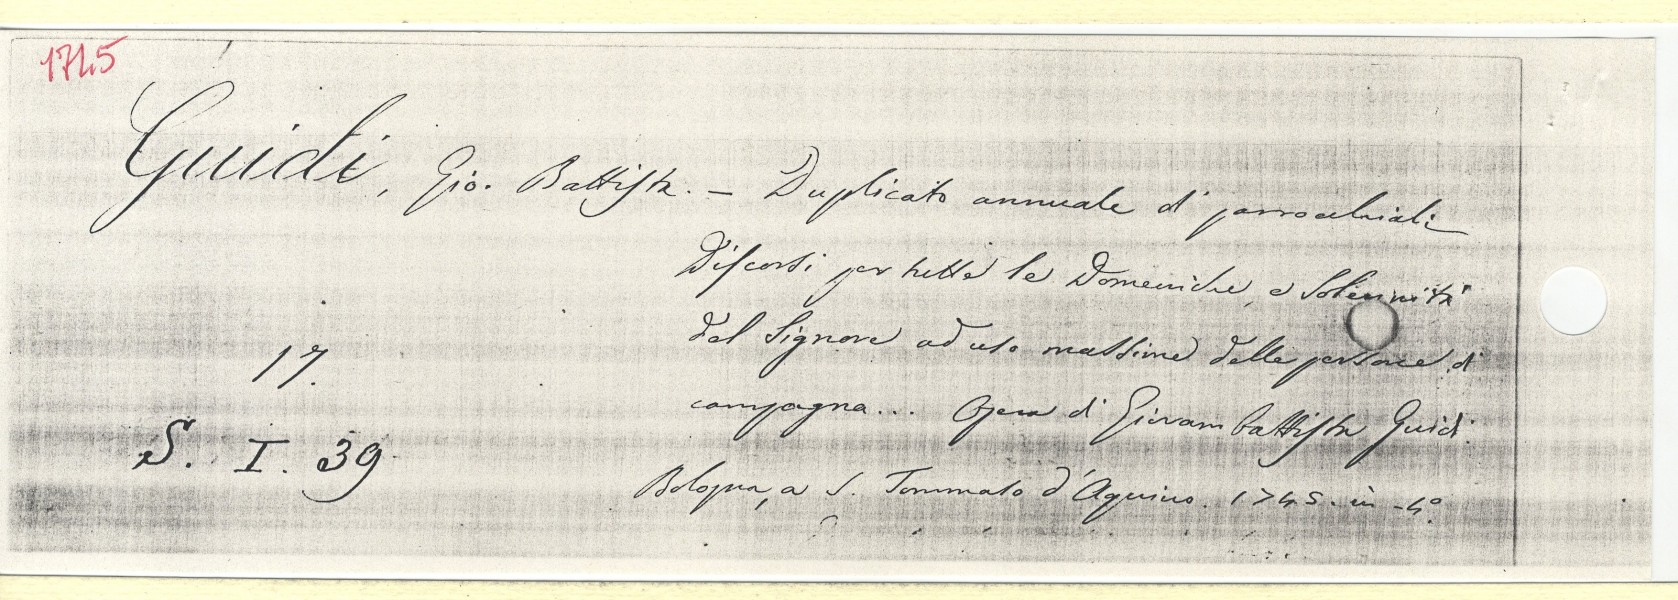 1745
Guidi, Gio. Battista. — Duplicato annuale di parrocchiali
Discorsi per tutte le Domeniche e Solennità
del Signore ad uso massime delle persone di
17.
campagna... Opera di Giovambattista Guidi
S. I. 39
Bologna, a S. Tommaso d'Aquino. 1745. in-4º.